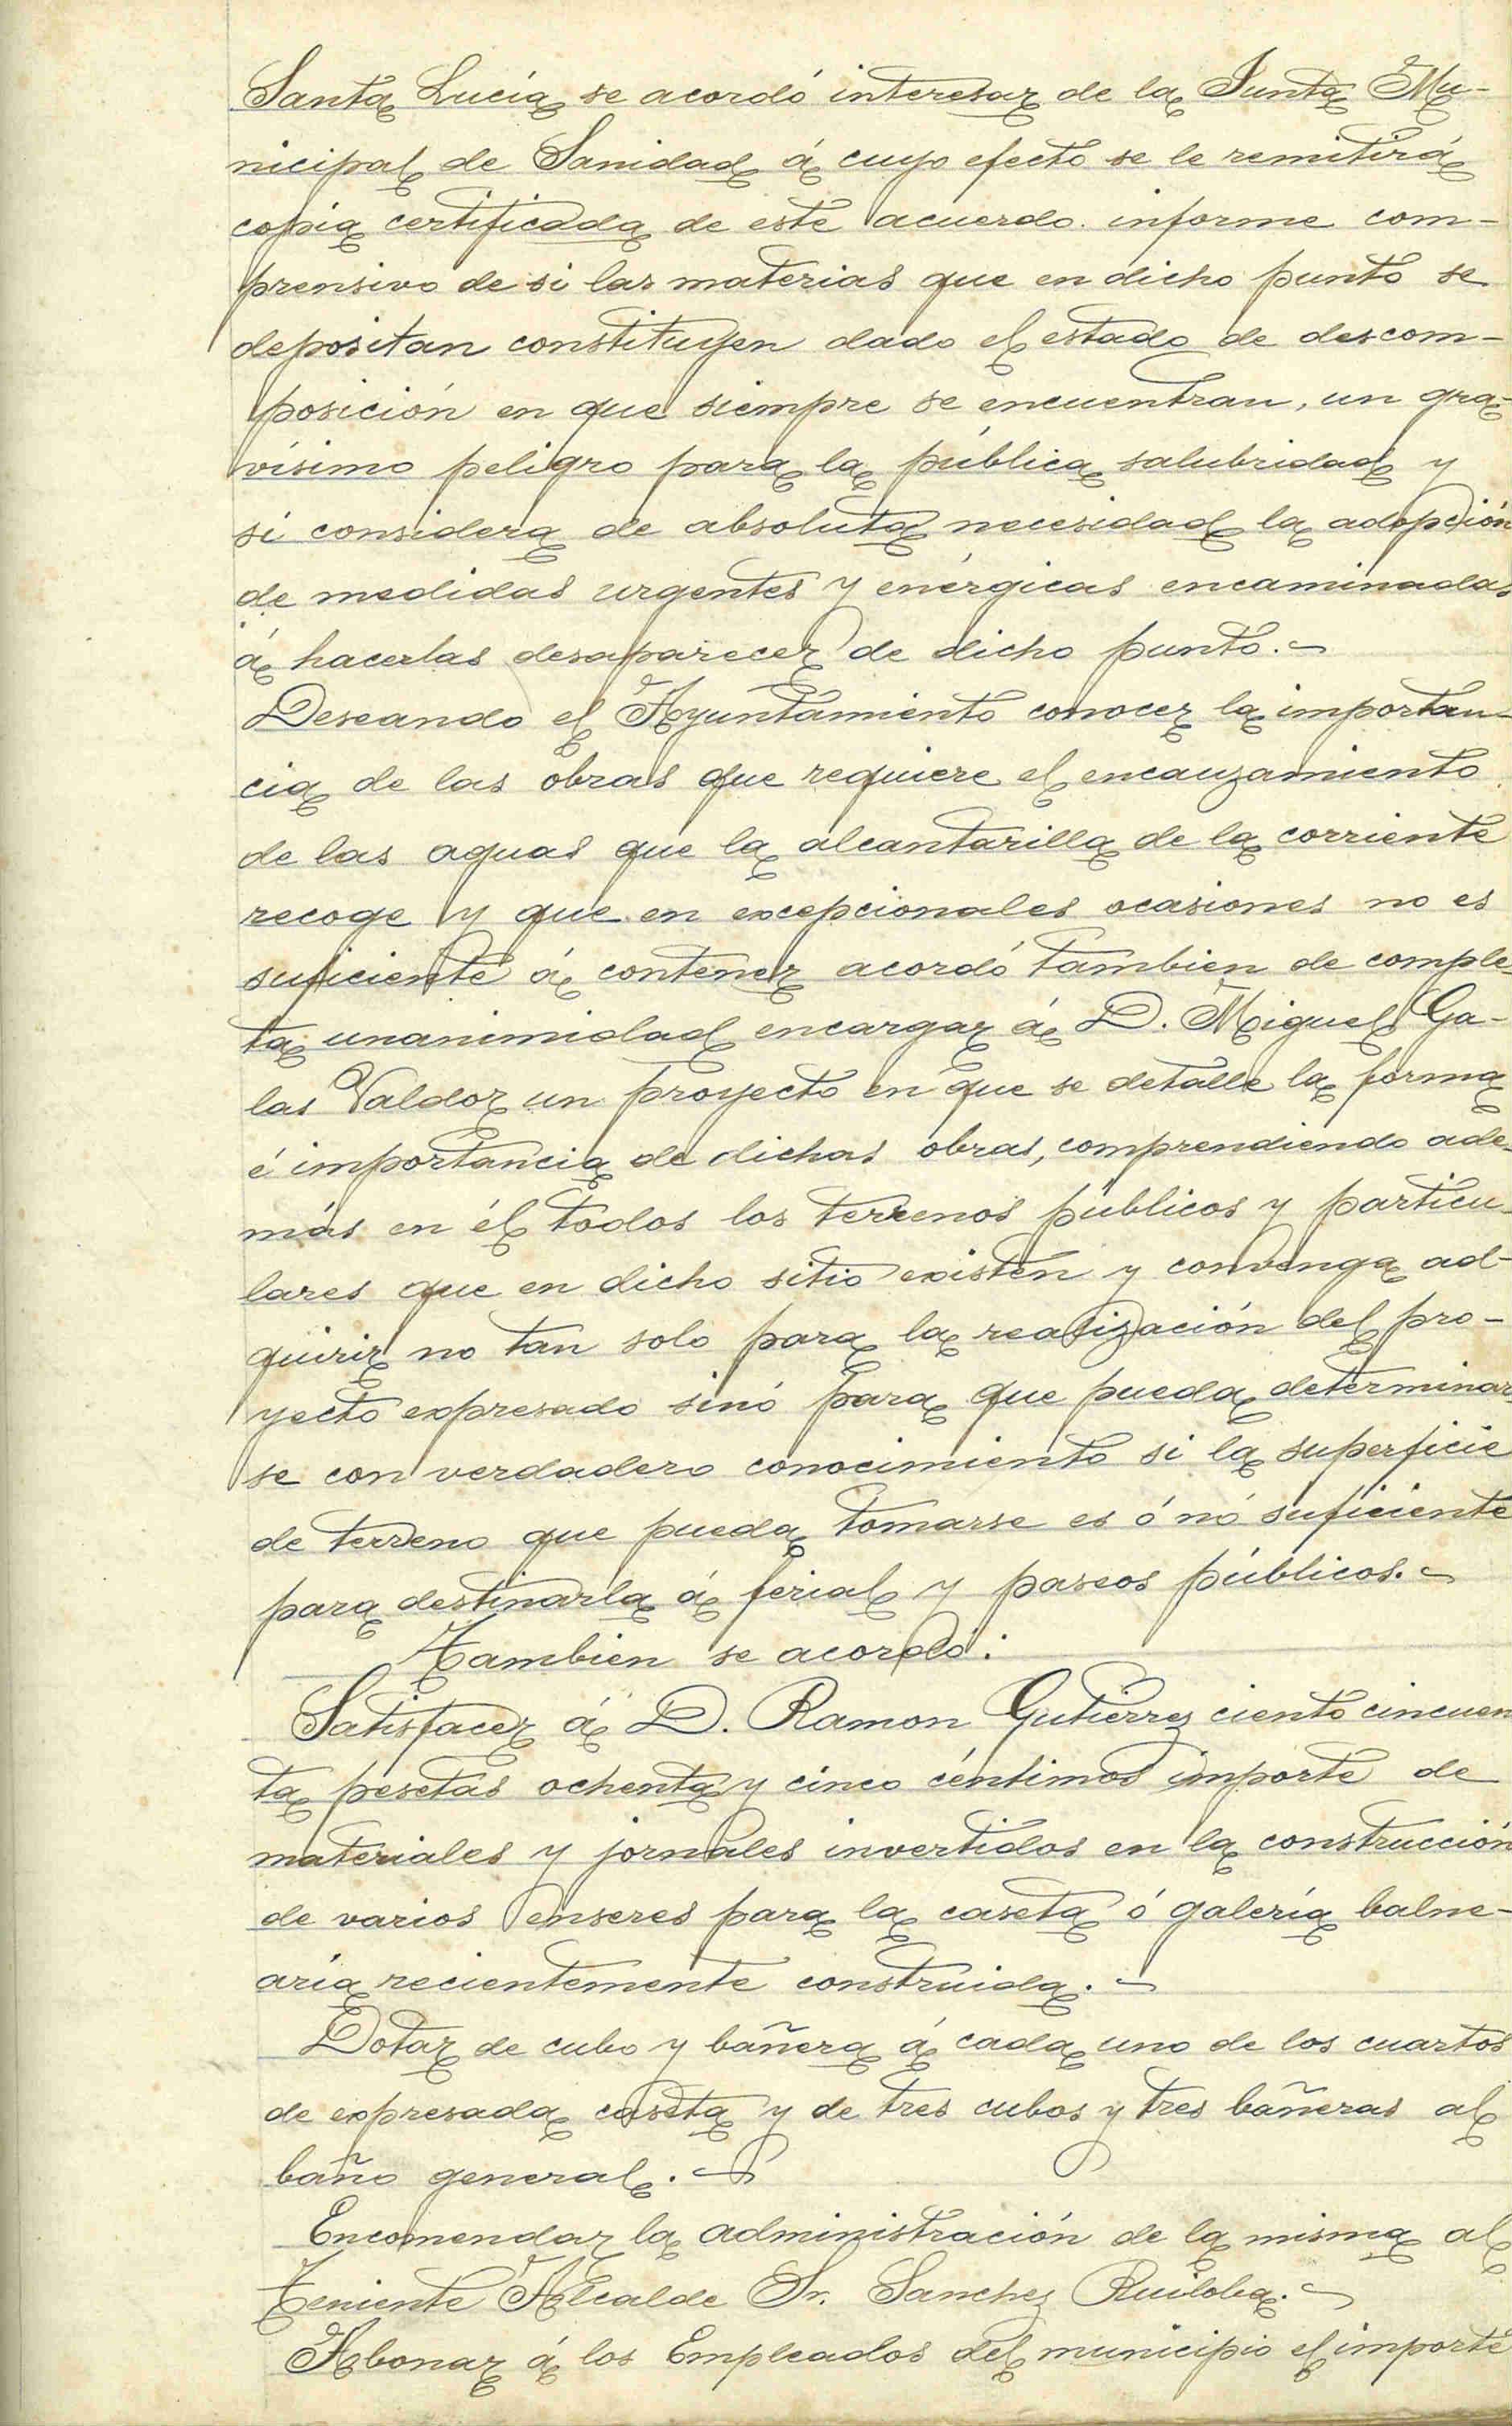 Santa Lucía se acordó interesar de la Junta Mu-
nicipal de Sanidad á cuyo efecto se le remitirá
copia certificada de este acuerdo. informe com-
prensivo de si las materias que en dicho punto se
depositan constituyen dado el estado de descom-
posición en que siempre se encuentran, un gra-
vísimo peligro para la pública salubridad y
si considera de absoluta necesidad la adopción
de medidas urgentes y enérgicas encaminadas
á hacerlas desaparecer de dicho punto.
Deseando el Ayuntamiento conocer la importan-
cia de las obras que requiere el encauzamiento
de las aguas que la alcantarilla de la corriente
recoge y que en excepcionales ocasiones no es
suficiente á contener acordó tambien de comple-
ta unanimidad encargar á D. Miguel Ga-
las Valdor un proyecto en que se detalle la forma
é importancia de dichas obras, comprendiendo ade-
más en él todos los terrenos públicos y particu-
lares que en dicho sitio existen y convenga ad-
quirir no tan solo para la realización del pro-
yecto expresado sinó para que pueda determinar
se con verdadero conocimiento si la superficie
de terreno que pueda tomarse es ó nó suficiente
para destinarla á ferial y paseos públicos.
Tambien se acordó:
Satisfacer á D. Ramon Gutierrez ciento cincuen
ta pesetas ochenta y cinco céntimos importe de
materiales y jornales invertidos en la construcción
de varios enseres para la caseta ó galería balne-
aría recientemente construida.
Dotar de cubo y bañera á cada uno de los cuartos
de expresada caseta y de tres cubos y tres bañeras al
baño general.
Encomendar la administración de la misma al
Teniente Alcalde Sr. Sanchez Ruiloba.
Abonar á los Empleados del municipio el importe